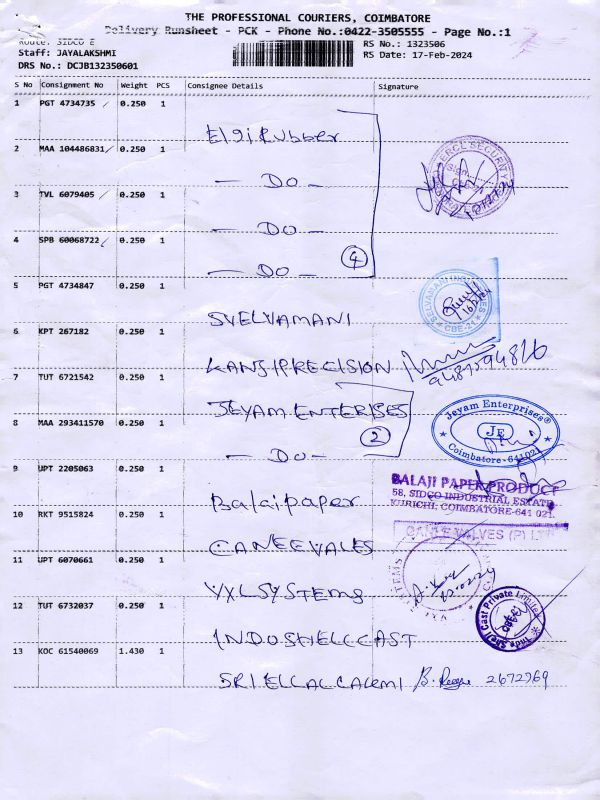 THE PROFESSIONAL COURIERS, COIMBATORE
Delivery Runsheet - PCK - Phone No.:0422-3505555 - Page No.:1
Route: SIDCO E
RS No.: 1323506
Staff: JAYALAKSHMI
RS Date: 17-Feb-2024
DRS No.: DCJB132350601
S No Consignment No Weight PCS Consignee Details Signature
1 PGT 4734735 0.250 1
Elgi Rubber
2 MAA 104486831 0.250 1
- DO -
3 TVL 6079405 0.250 1
- DO -
4 SPB 60068722 0.250 1
- DO - 4
5 PGT 4734847 0.250 1
SVELVAMANI
6 KPT 267182 0.250 1
KANSIPRECISION
7 TUT 6721542 0.250 1
JEYAM ENTERISES
8 MAA 293411570 0.250 1
- DO - 2
Jeyam Enterprises®
JE
Coimbatore - 641021
9 UPT 2205063 0.250 1
Balaipaper
BALAJI PAPER PRODUCT
58, SIDCO INDUSTRIAL ESTATE
KURICHI, COIMBATORE-641 021.
10 RKT 9515824 0.250 1
CANEEVALES
VALVES (P) LT
11 UPT 6070661 0.250 1
VXLSYSTEMS
12 TUT 6732037 0.250 1
INDOSHELLCAST
Indo Shell Cast Private Limited
13 KOC 61540069 1.430 1
SRIELLALCALRMI 2672969